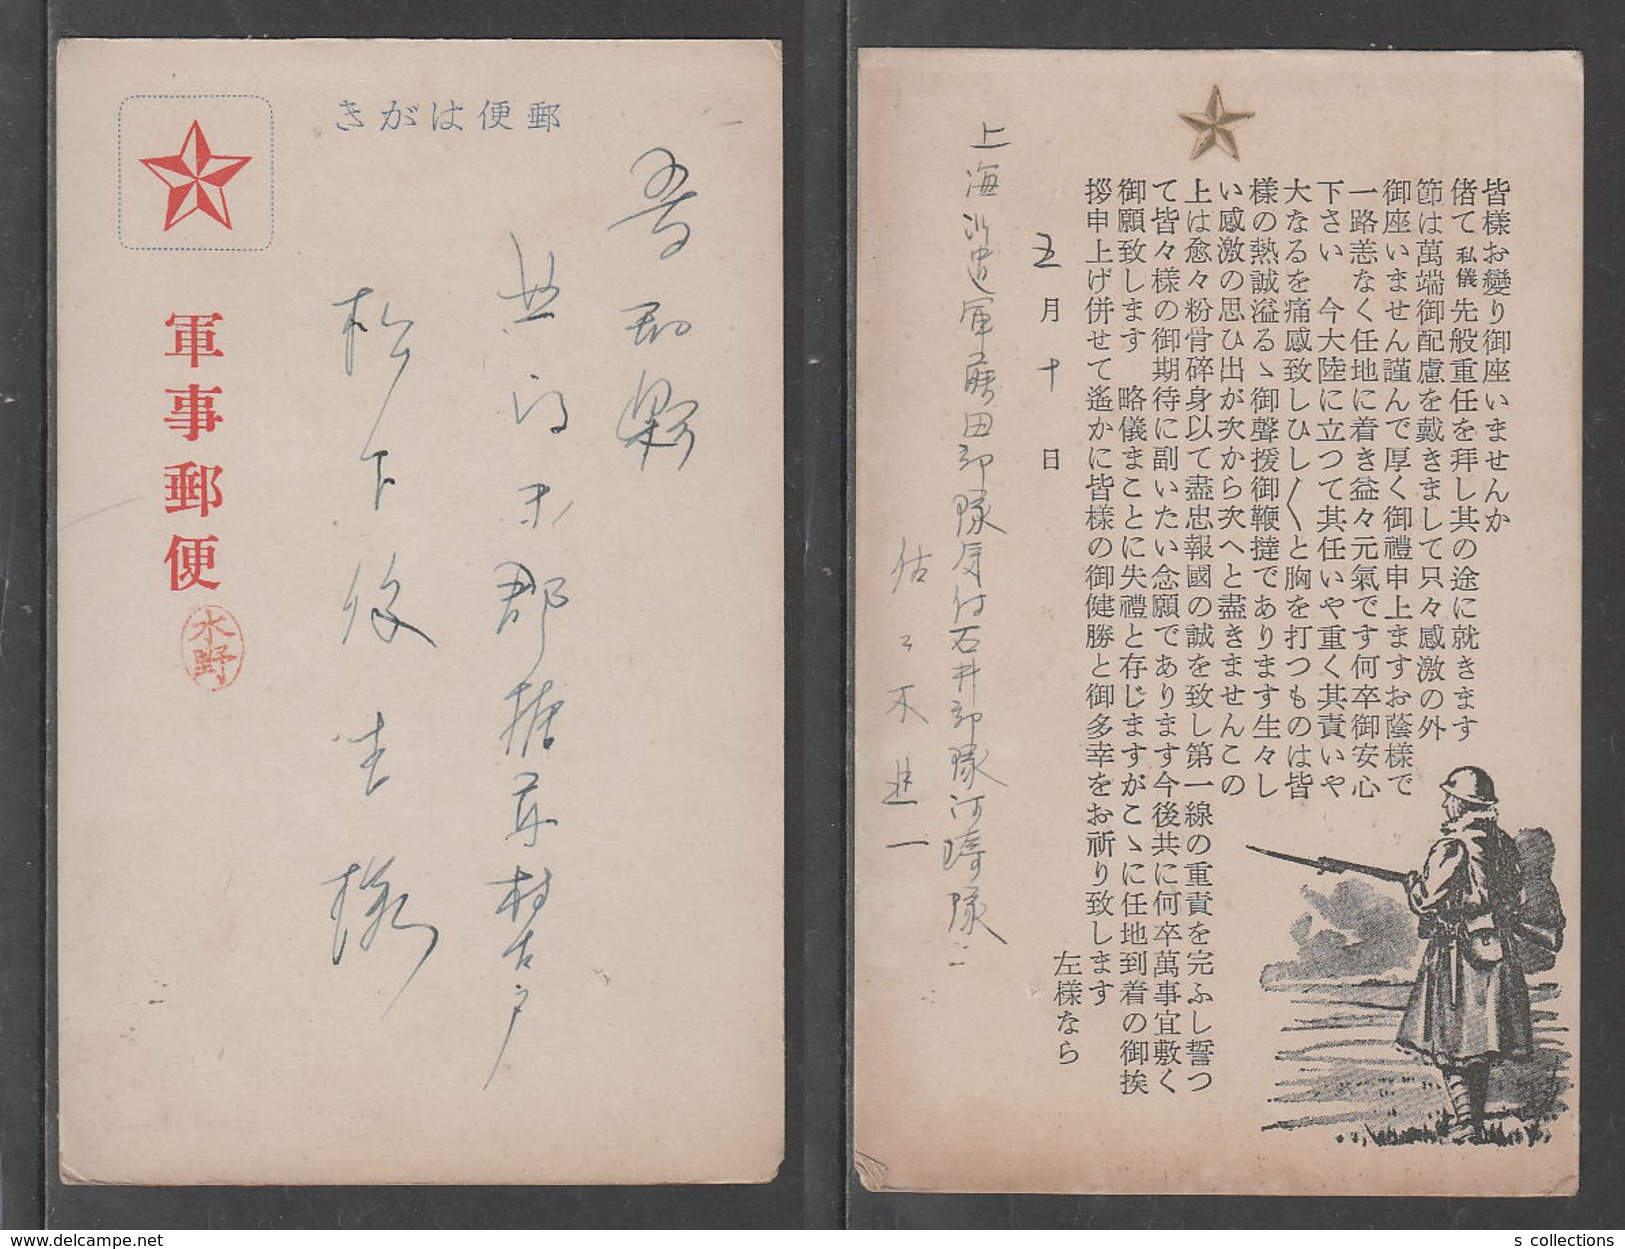 郵便はがき
軍事郵便
水野
松下
皆様お變り御座いませんか
偖て私儀先般重任を拜し其の途に就きます
節は萬端御配慮を戴きまして只々感激の外
御座いません謹んで厚く御禮申上ますお蔭樣で
一路恙なく任地に着き益々元氣です何卒御安心
下さい　今大陸に立つて其任いや重く其責いや
大なるを痛感致しひし〳〵と胸を打つものは皆
樣の熱誠溢るゝ御聲援御鞭撻であります生々し
い感激の思ひ出が次から次へと盡きませんこの
上は愈々粉骨碎身以て盡忠報國の誠を致し第一線の重責を完ふし誓つ
て皆々樣の御期待に副いたい念願であります今後共に何卒萬事宜敷く
御願致します　略儀まことに失禮と存じますがこゝに任地到着の御挨
拶申上げ併せて遙かに皆樣の御健勝と御多幸をお祈り致します
左樣なら
五月十日
上海派遣軍藤田部隊氣付石井部隊河崎隊
佐々木進一
s collections